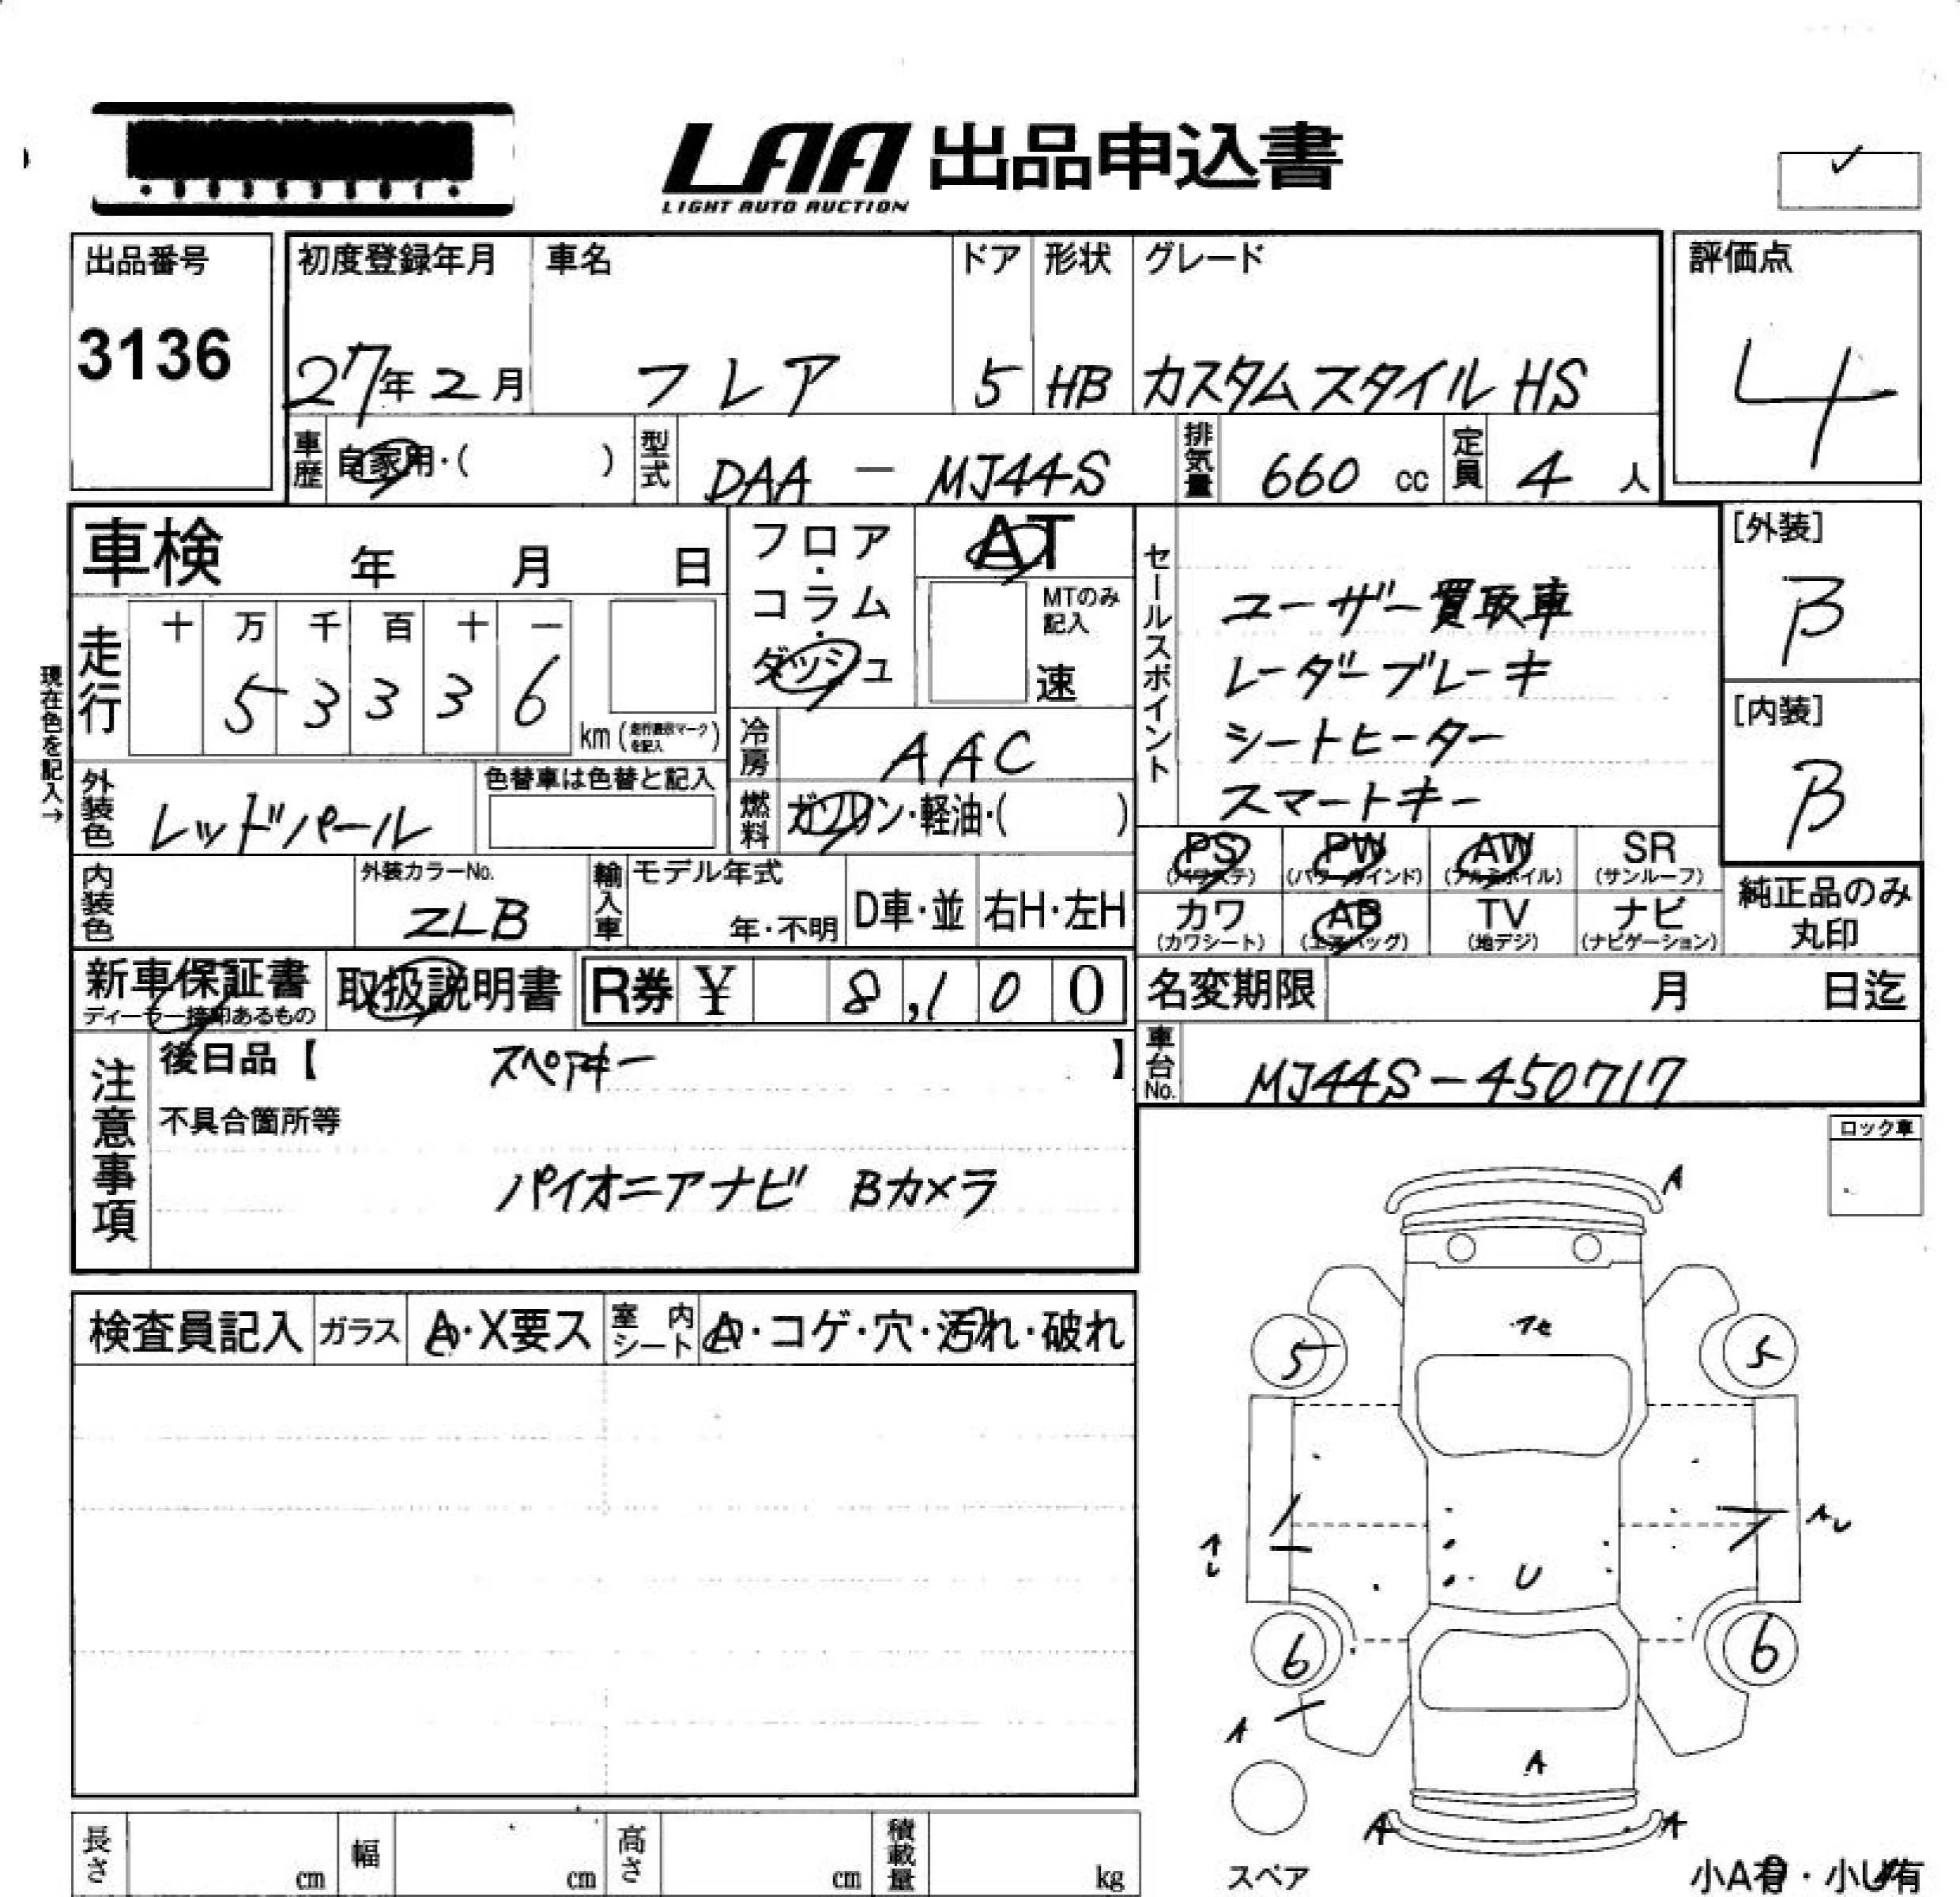 LAA 出品申込書
LIGHT AUTO AUCTION
✓
出品番号 初度登録年月 車名 ドア 形状 グレード 評価点
3136 27年2月 フレア 5 HB カスタムスタイル HS 4
車歴 自家用・( ) 型式 DAA - MJ44S 排気量 660 cc 定員 4 人
車検 年 月 日 フロア・コラム・ダッシュ AT セールスポイント [外装]
MTのみ記入 速
ユーザー買取車 B
走行 十 万 千 百 十 一
5 3 3 3 6 km (走行疑マークを記入)
レーダーブレーキ
シートヒーター [内装]
スマートキー B
現在色を記入→
冷房 AAC
外装色 レッドパール 色替車は色替と記入 燃料 ガソリン・軽油・( )
PS PW AW SR
(パワステ) (パワーウインド) (アルミホイル) (サンルーフ)
内装色 外装カラーNo. ZLB 輸入車 モデル年式 年・不明 D車・並 右H・左H
カワ AB TV ナビ
(カワシート) (エアバッグ) (地デジ) (ナビゲーション)
純正品のみ
丸印
新車保証書 取扱説明書 R券 ¥ 8,100 名変期限 月 日迄
ディーラー捺印あるもの
注意事項 後日品【 スペアキー 】 車台No. MJ44S-450717
不具合箇所等 ロック車
パイオニアナビ Bカメラ
検査員記入 ガラス A・X要ス 室内シート A・コゲ・穴・汚れ・破れ
A
5 5
U
6 6
A
A
A A
スペア
小A有・小U有
長さ cm 幅 cm 高さ cm 積載量 kg